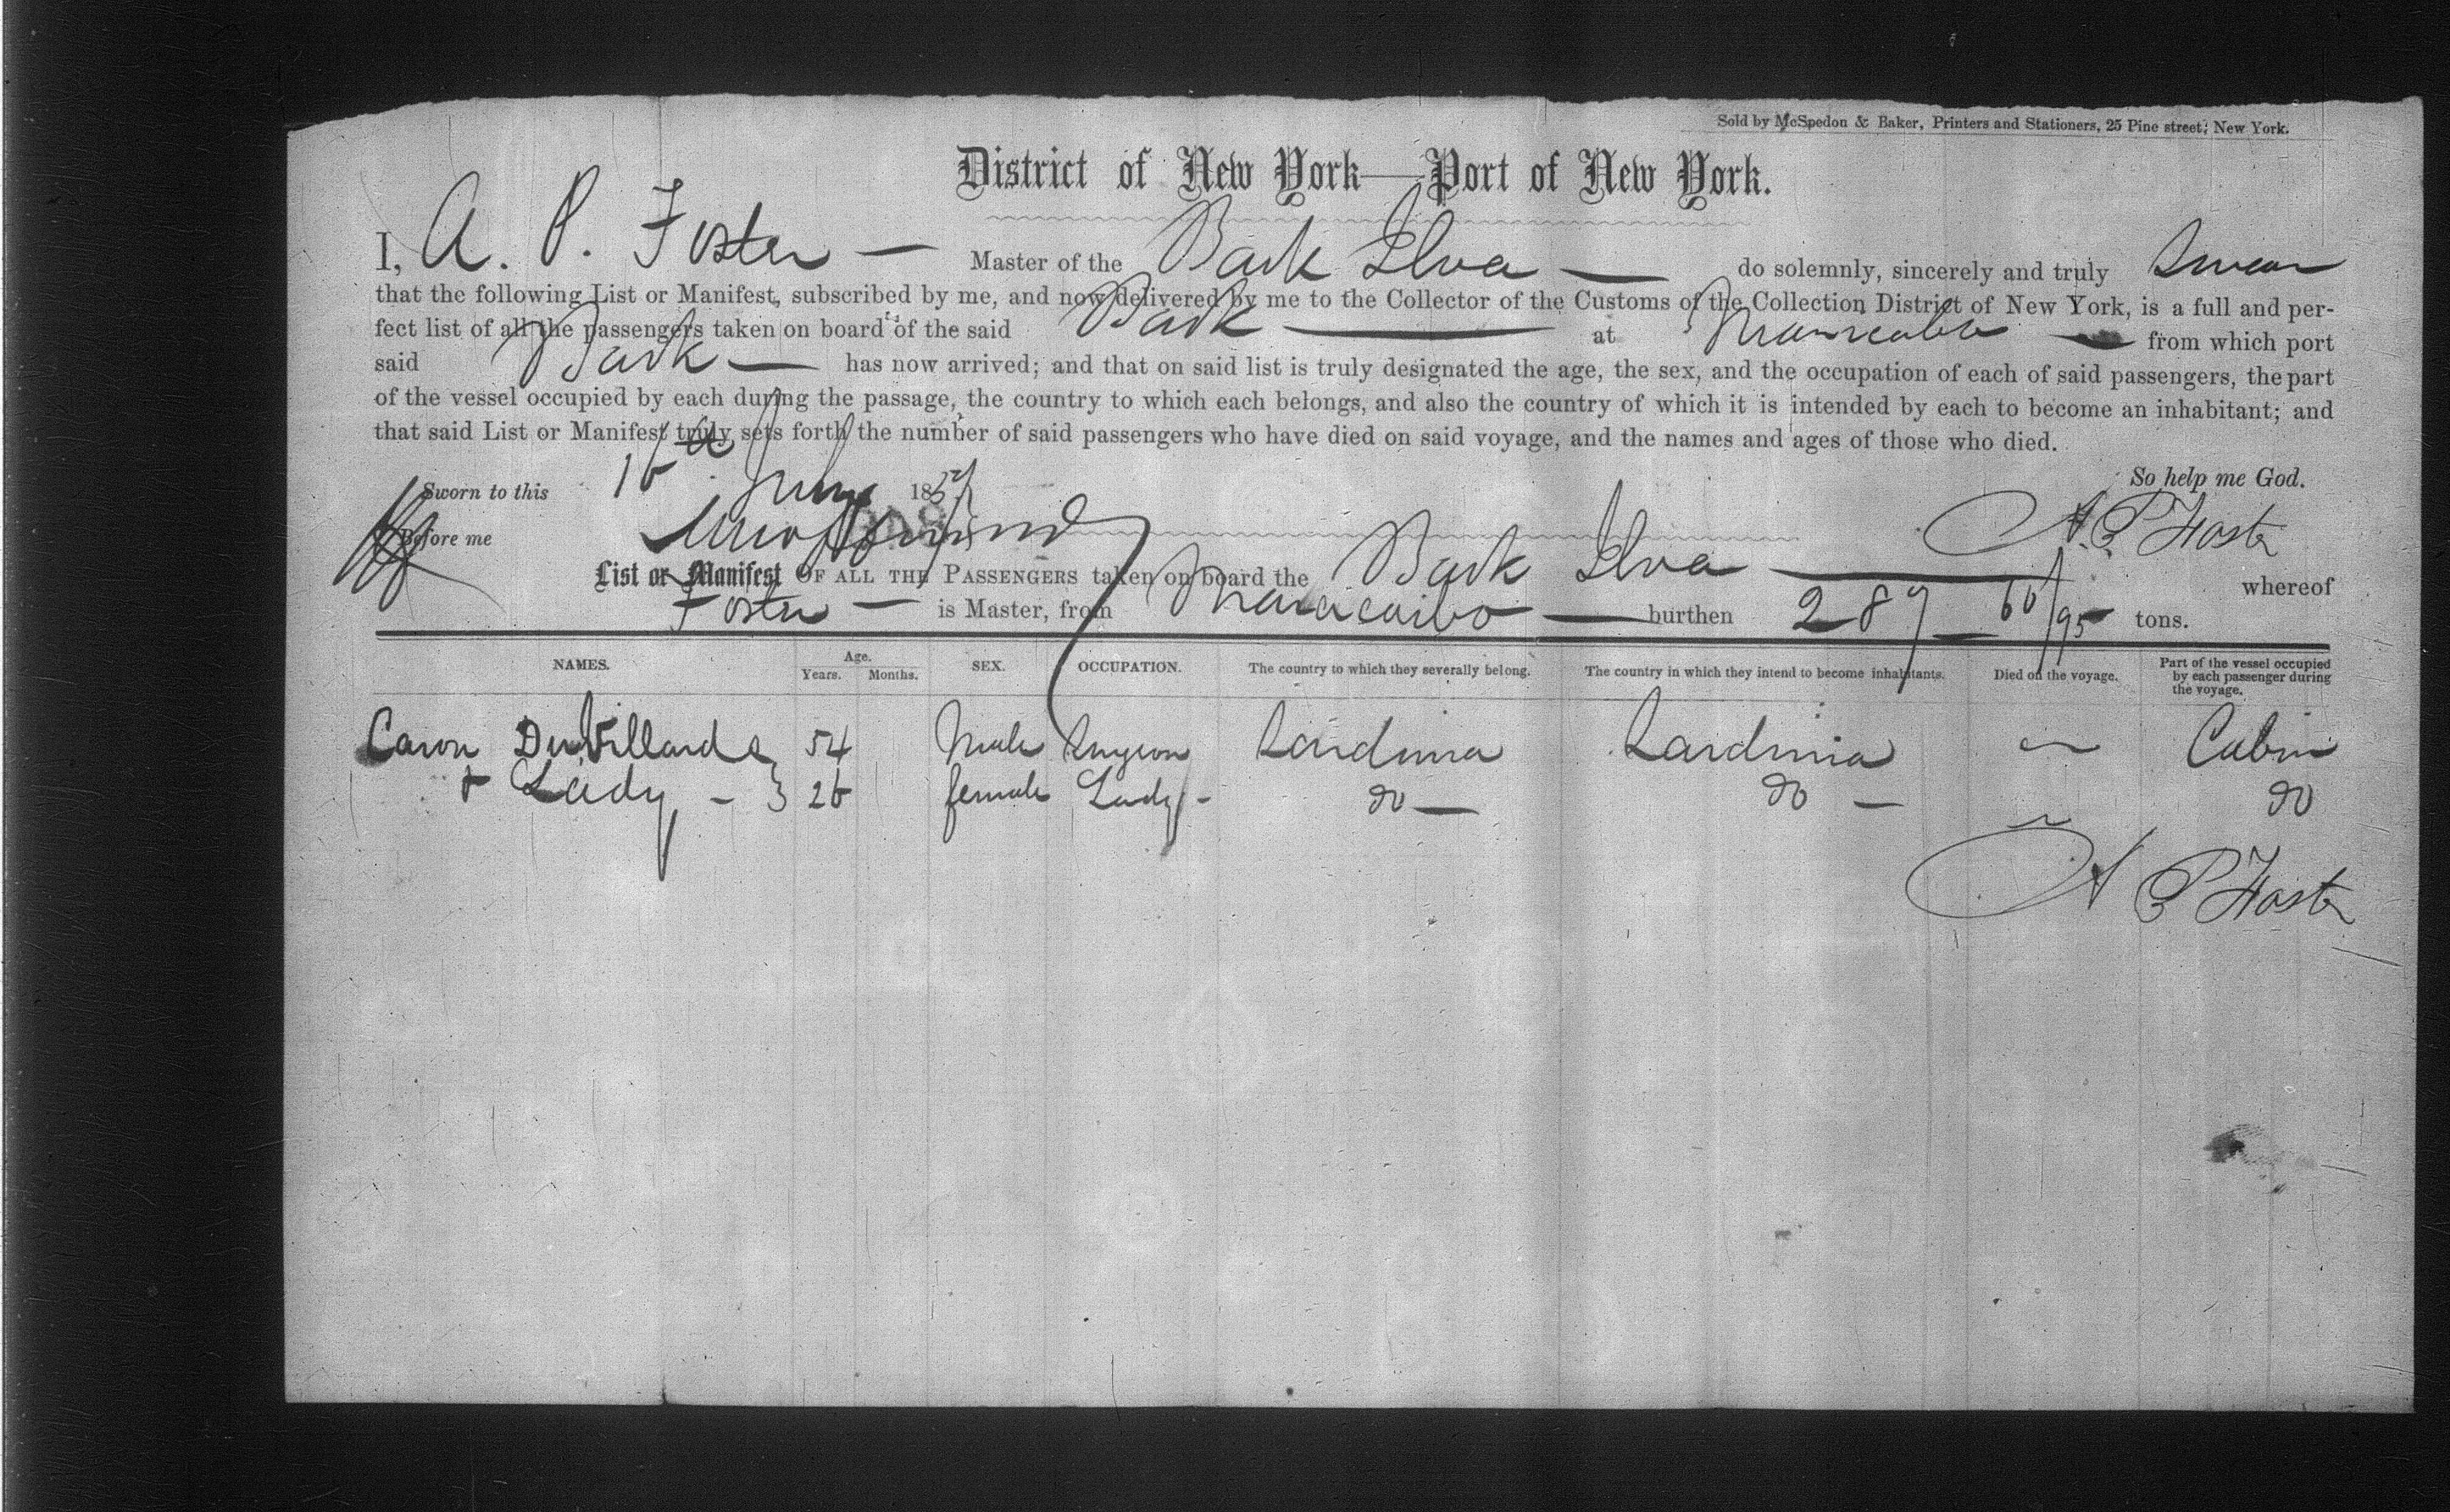 Sold by McSpedon & Baker, Printers and Stationers, 25 Pine street, New York.
District of New York—Port of New York.
I, A. P. Foster — Master of the Bark Elva — do solemnly, sincerely and truly Swear
that the following List or Manifest, subscribed by me, and now delivered by me to the Collector of the Customs of the Collection District of New York, is a full and per-
fect list of all the passengers taken on board of the said Bark — at Maracaibo — from which port
said Bark — has now arrived; and that on said list is truly designated the age, the sex, and the occupation of each of said passengers, the part
of the vessel occupied by each during the passage, the country to which each belongs, and also the country of which it is intended by each to become an inhabitant; and
that said List or Manifest truly sets forth the number of said passengers who have died on said voyage, and the names and ages of those who died.
So help me God.
Sworn to this 16th 185
Before me A. P. Foster
List or Manifest OF ALL THE PASSENGERS taken on board the Bark Elva — whereof
Foster — is Master, from Maracaibo — burthen 289 60/95 tons.
NAMES. Age. Years. Months. SEX. OCCUPATION. The country to which they severally belong. The country in which they intend to become inhabitants. Died on the voyage. Part of the vessel occupied by each passenger during the voyage.
Caron DuVillards 54 Male Surgeon Sardinia Sardinia — Cabin
& Lady - } 26 female Lady - do — do — do
A P Foster